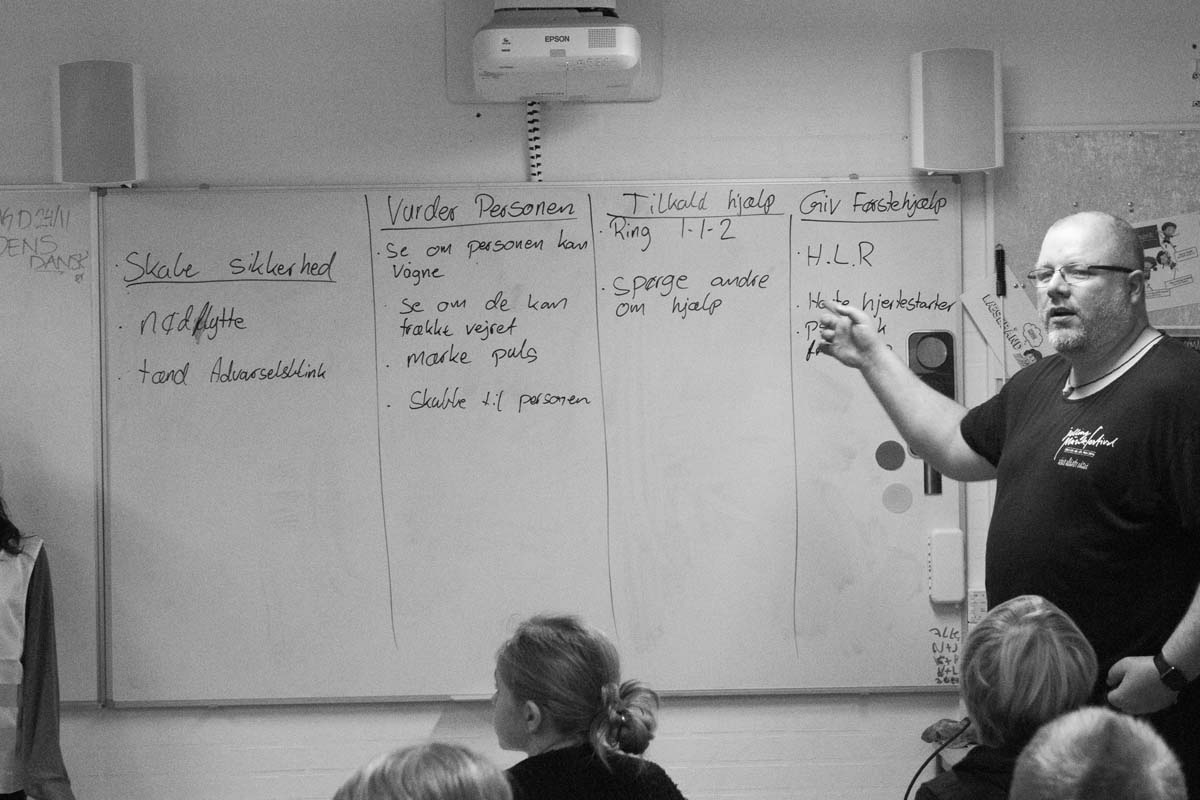 EPSON
G D 24/11
DENS
DANSK
Skabe sikkerhed
· nødflytte
· tænd Advarselsblink
Vurder Personen
· Se om personen kan
vågne
· Se om de kan
trække vejret
· mærke puls
· Skabbe til personen
Tilkald hjælp
· Ring 1-1-2
· Spørge andre
om hjælp
Giv Førstehjælp
· H.L.R
· hjertestarter
LÆSEBÅND
jelling
musikfestival